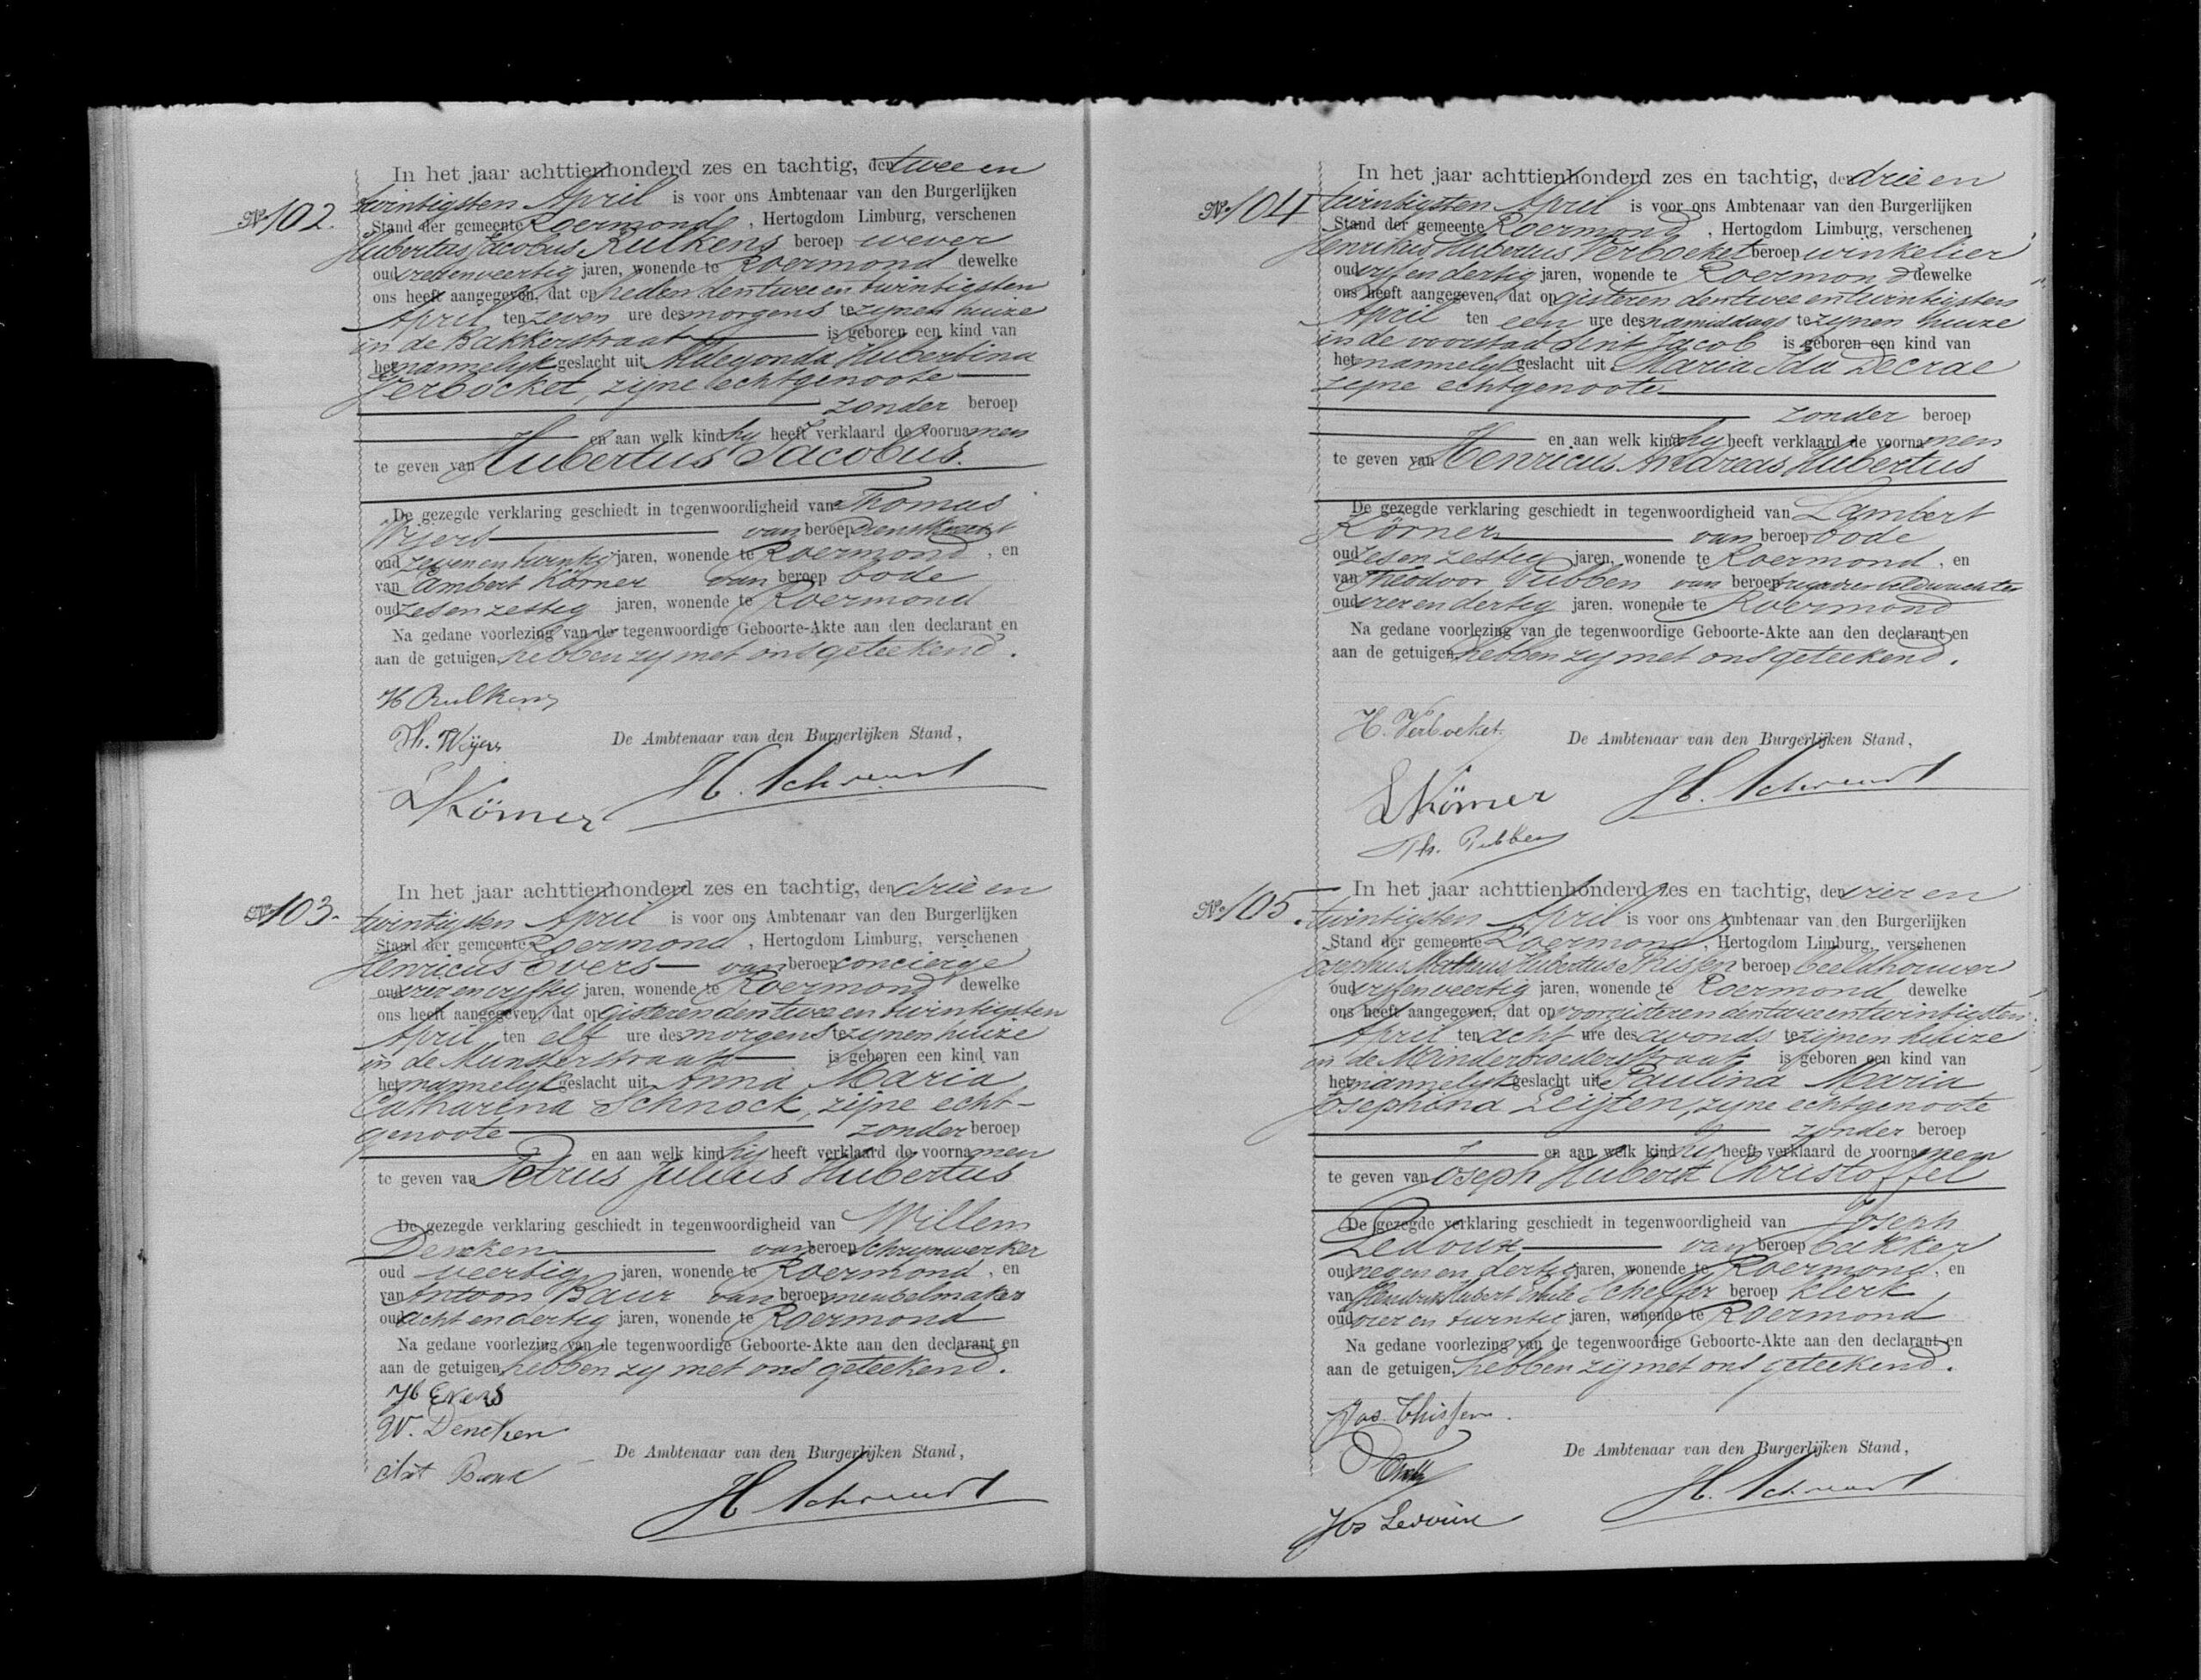 In het jaar achttienhonderd zes en tachtig, den twee en
No 102. twintigsten April is voor ons Ambtenaar van den Burgerlijken
Stand der gemeente Roermond, Hertogdom Limburg, verschenen
Hubertus Jacobus Rulkens beroep wever
oud jaren, wonende te Roermond dewelke
ons heeft aangegeven, dat op heden den twee en twintigsten
April ten zeven ure des morgens te zijnen huize
in de Bakkerstraat is geboren een kind van
het mannelijk geslacht uit Aldegonda Hubertina
Verboeket, zijne echtgenoote
zonder beroep
en aan welk kind hij heeft verklaard de voornamen
te geven van Hubertus Jacobus.
De gezegde verklaring geschiedt in tegenwoordigheid van Thomas
Wijers van beroep dienstknecht
oud zeven en twintig jaren, wonende te Roermond, en
van Lambert Körner van beroep bode
oud zes en zestig jaren, wonende te Roermond
Na gedane voorlezing van de tegenwoordige Geboorte-Akte aan den declarant en
aan de getuigen, hebben zij met ons geteekend.
H Rulkens
Th. Wijers De Ambtenaar van den Burgerlijken Stand,
L Körner H.
In het jaar achttienhonderd zes en tachtig, den drie en
No 103. twintigsten April is voor ons Ambtenaar van den Burgerlijken
Stand der gemeente Roermond, Hertogdom Limburg, verschenen
Henricus Evers van beroep concierge
oud vier en vijftig jaren, wonende te Roermond dewelke
ons heeft aangegeven, dat op gisteren den twee en twintigsten
April ten elf ure des morgens te zijnen huize
in de Munsterstraat is geboren een kind van
het mannelijk geslacht uit Anna Maria
Catharena Schnock, zijne echt-
genoote zonder beroep
en aan welk kind hij heeft verklaard de voornamen
te geven van Petrus Julius Hubertus
De gezegde verklaring geschiedt in tegenwoordigheid van Willem
Dencken van beroep schrijnwerker
oud veertig jaren, wonende te Roermond, en
van Antoon Baur van beroep meubelmaker
oud acht en dertig jaren, wonende te Roermond
Na gedane voorlezing van de tegenwoordige Geboorte-Akte aan den declarant en
aan de getuigen, hebben zij met ons geteekend.
H Evers
W. Dencken
De Ambtenaar van den Burgerlijken Stand,
Ant Baur
H.
In het jaar achttienhonderd zes en tachtig, den drie en
No 104 twintigsten April is voor ons Ambtenaar van den Burgerlijken
Stand der gemeente Roermond, Hertogdom Limburg, verschenen
Henrikus Hubertus Verboeket beroep winkelier
oud vijf en dertig jaren, wonende te Roermond dewelke
ons heeft aangegeven, dat op gisteren den twee en twintigsten
April ten een ure des namiddags te zijnen huize
in de voorstad Sint Jacob is geboren een kind van
het mannelijk geslacht uit Maria Ida Decrae
zijne echtgenoote
zonder beroep
en aan welk kind hij heeft verklaard de voornamen
te geven van Henricus Andreas Hubertus
De gezegde verklaring geschiedt in tegenwoordigheid van Lambert
Körner van beroep bode
oud zes en zestig jaren, wonende te Roermond, en
van Theodoor Pubben van beroep veldwachter
oud vier en dertig jaren, wonende te Roermond
Na gedane voorlezing van de tegenwoordige Geboorte-Akte aan den declarant en
aan de getuigen, hebben zij met ons geteekend.
H. Verboeket. De Ambtenaar van den Burgerlijken Stand,
L Körner H.
Th. Pubben
In het jaar achttienhonderd zes en tachtig, den vier en
No 105. twintigsten April is voor ons Ambtenaar van den Burgerlijken
Stand der gemeente Roermond, Hertogdom Limburg, verschenen
Josephus Mathius Hubertus Thissen beroep beeldhouwer
oud vijf en veertig jaren, wonende te Roermond dewelke
ons heeft aangegeven, dat op voorgisteren den twee en twintigsten
April ten acht ure des avonds te zijnen huize
in de Minderbroederstraat is geboren een kind van
het mannelijk geslacht uit Paulina Maria
Josephina Leijten, zijne echtgenoote
zonder beroep
en aan welk kind hij heeft verklaard de voornamen
te geven van Joseph Hubert Christoffel
De gezegde verklaring geschiedt in tegenwoordigheid van Joseph
Ledoux van beroep bakker
oud negen en dertig jaren, wonende te Roermond, en
van Hendrik Hubert Scheffer beroep klerk
oud vier en twintig jaren, wonende te Roermond
Na gedane voorlezing van de tegenwoordige Geboorte-Akte aan den declarant en
aan de getuigen, hebben zij met ons geteekend.
Jos. Thissen.
De Ambtenaar van den Burgerlijken Stand,
H.
Jos Ledoux